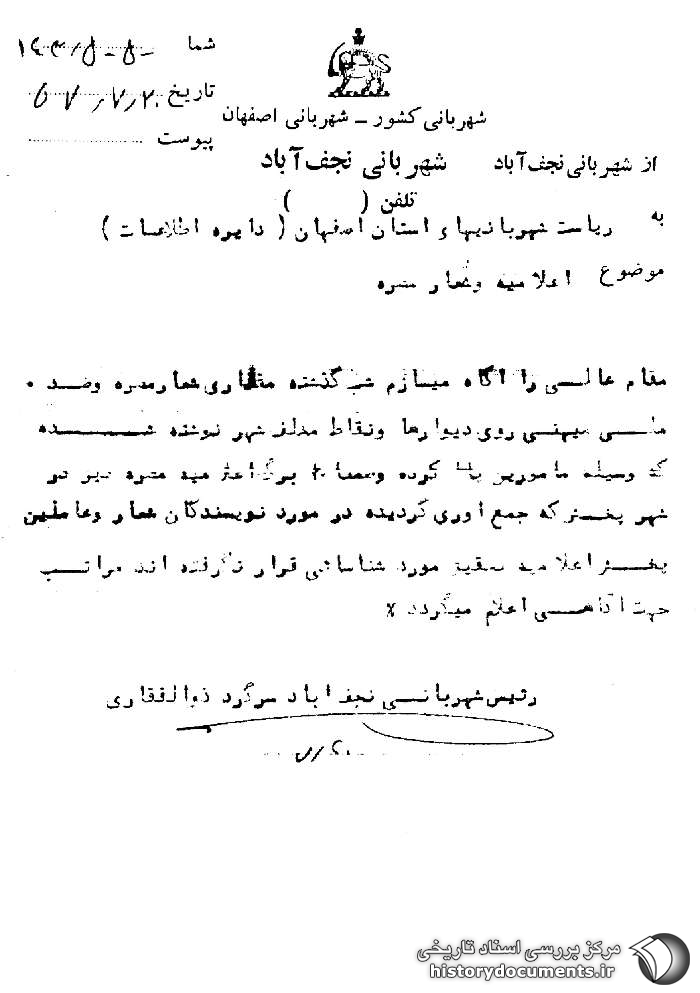 شما ۱۴۳/۵-۵-
تاریخ ۵۷/۷/۲۰
پیوست
شهربانی کشور ــ شهربانی اصفهان
از شهربانی نجف‌آباد شهربانی نجف‌آباد
تلفن ( )
به ریاست شهربانیهای استان اصفهان ( دایره اطلاعات )
موضوع اعلامیه وشعار مضره
مقام عالی را آگاه میسازم شب گذشته مقداری شعارمضره وضد
ملی میهنی روی دیوارها ونقاط مختلف شهر نوشته شده
که وسیله مامورین پاک کرده وضمنا برگ اعلامیه مضره نیز در
شهر پخش که جمع اوری گردیده در مورد نویسندگان شعار وعاملین
پخش اعلامیه مورد شناسائی قرار نگرفته اند مراتب
جهت آگاهی اعلام میگردد x
رئیس شهربانی نجف اباد سرگرد ذوالفقاری
مرکز بررسی اسناد تاریخی
historydocuments.ir